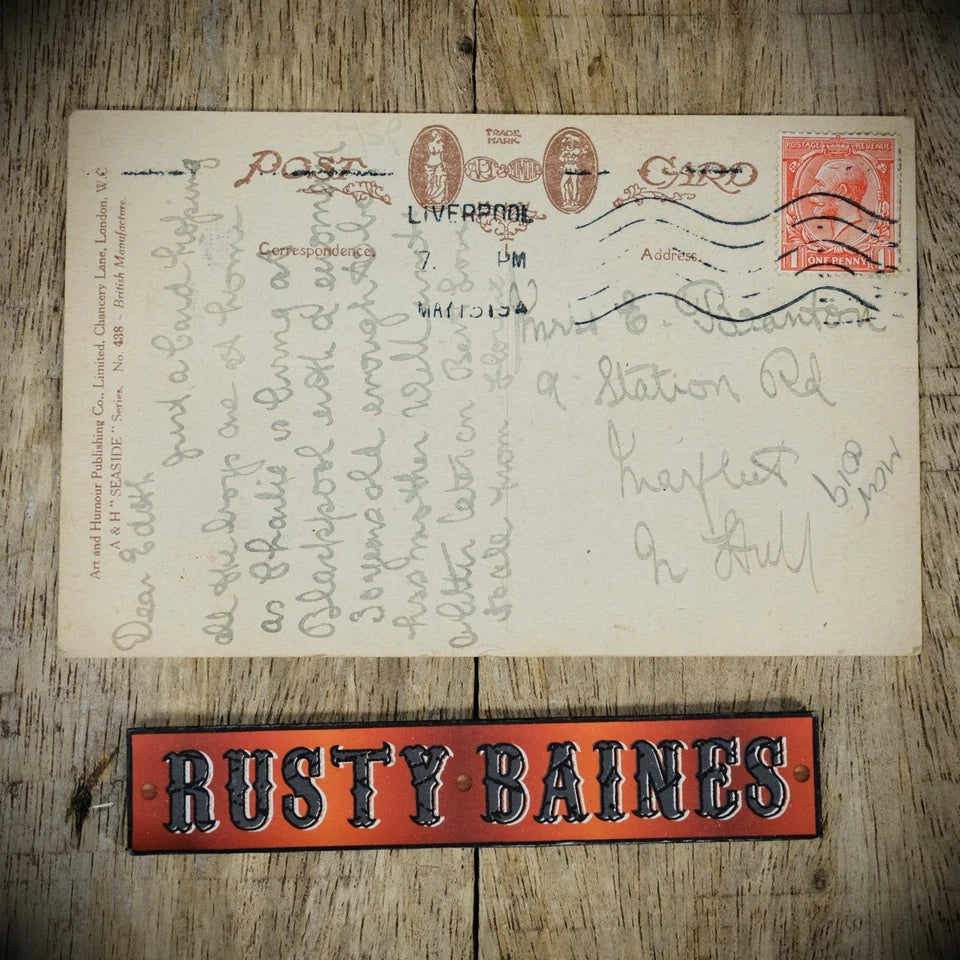 POST CARD
TRADE
MARK
ART & HUMOUR
Correspondence.
Address.
LIVERPOOL
7. PM
MAY 15 19
POSTAGE REVENUE
1 ONE PENNY 1
Art and Humour Publishing Co., Limited, Chancery Lane, London, W.C.
A & H "SEASIDE" Series. No. 438 - British Manufacture.
Dear Edith
just a card hoping
all the boys are at home
as Charlie is living at
Blackpool with a
3 years old enough to
his mother Well
a letter later on
to all from
Mrs E.
9 Station Rd
Marfleet
Hull
RUSTY BAINES